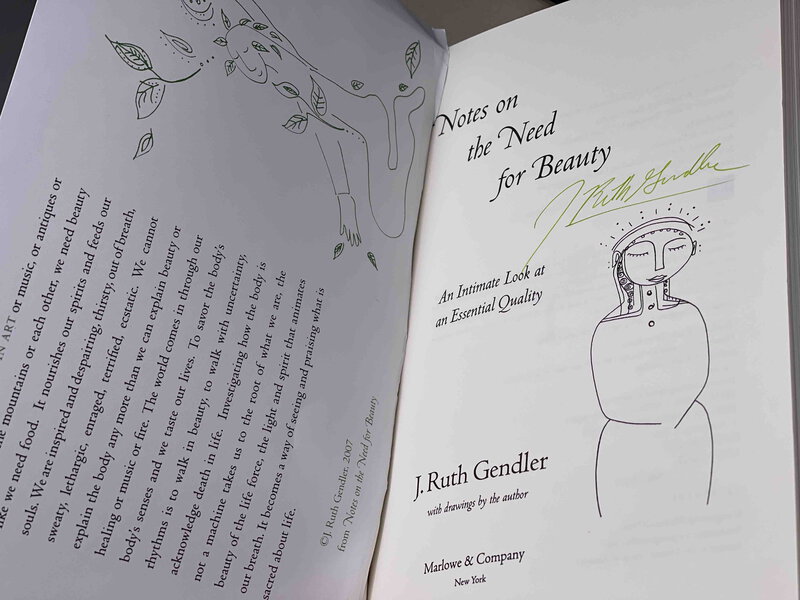 IN ART or music, or antiques or
the mountains or each other, we need beauty
like we need food. It nourishes our spirits and feeds our
souls. We are inspired and despairing, thirsty, out of breath.
sweaty, lethargic, enraged, terrified, ecstatic. We cannot
explain the body any more than we can explain beauty or
healing or music or fire. The world comes in through our
body's senses and we taste our lives. To savor the body's
rhythms is to walk in beauty, to walk with uncertainty,
acknowledge death in life. Investigating how the body is
not a machine takes us to the root of what we are, the
beauty of the life force, the light and spirit that animates
our breath. It becomes a way of seeing and praising what is
sacred about life.
©J. Ruth Gendler. 2007
from Notes on the Need for Beauty
Notes on
the Need
for Beauty
J. Ruth Gendler
An Intimate Look at
an Essential Quality
J. Ruth Gendler
with drawings by the author
Marlowe & Company
New York